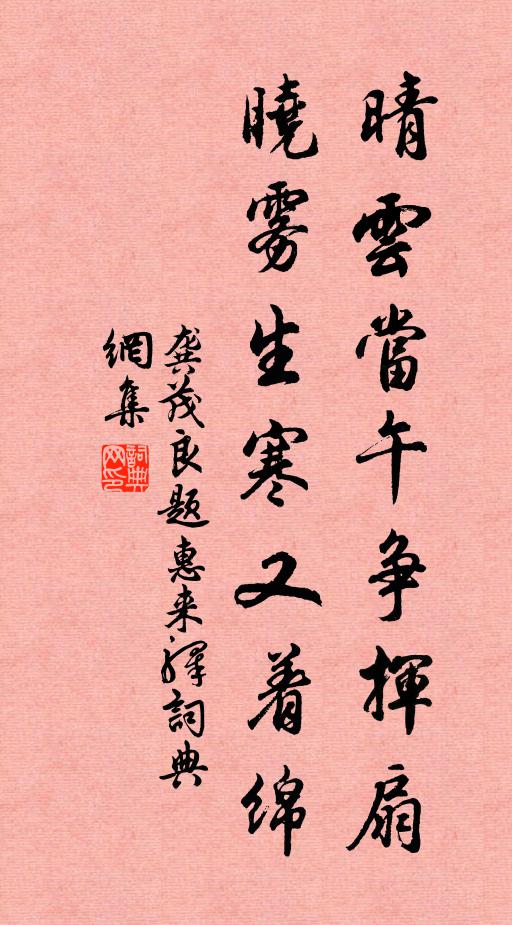 晴雲當午争揮扇
曉雾生寒又着綿
龔茂良题惠来驛詞典
網集
詞典
网印